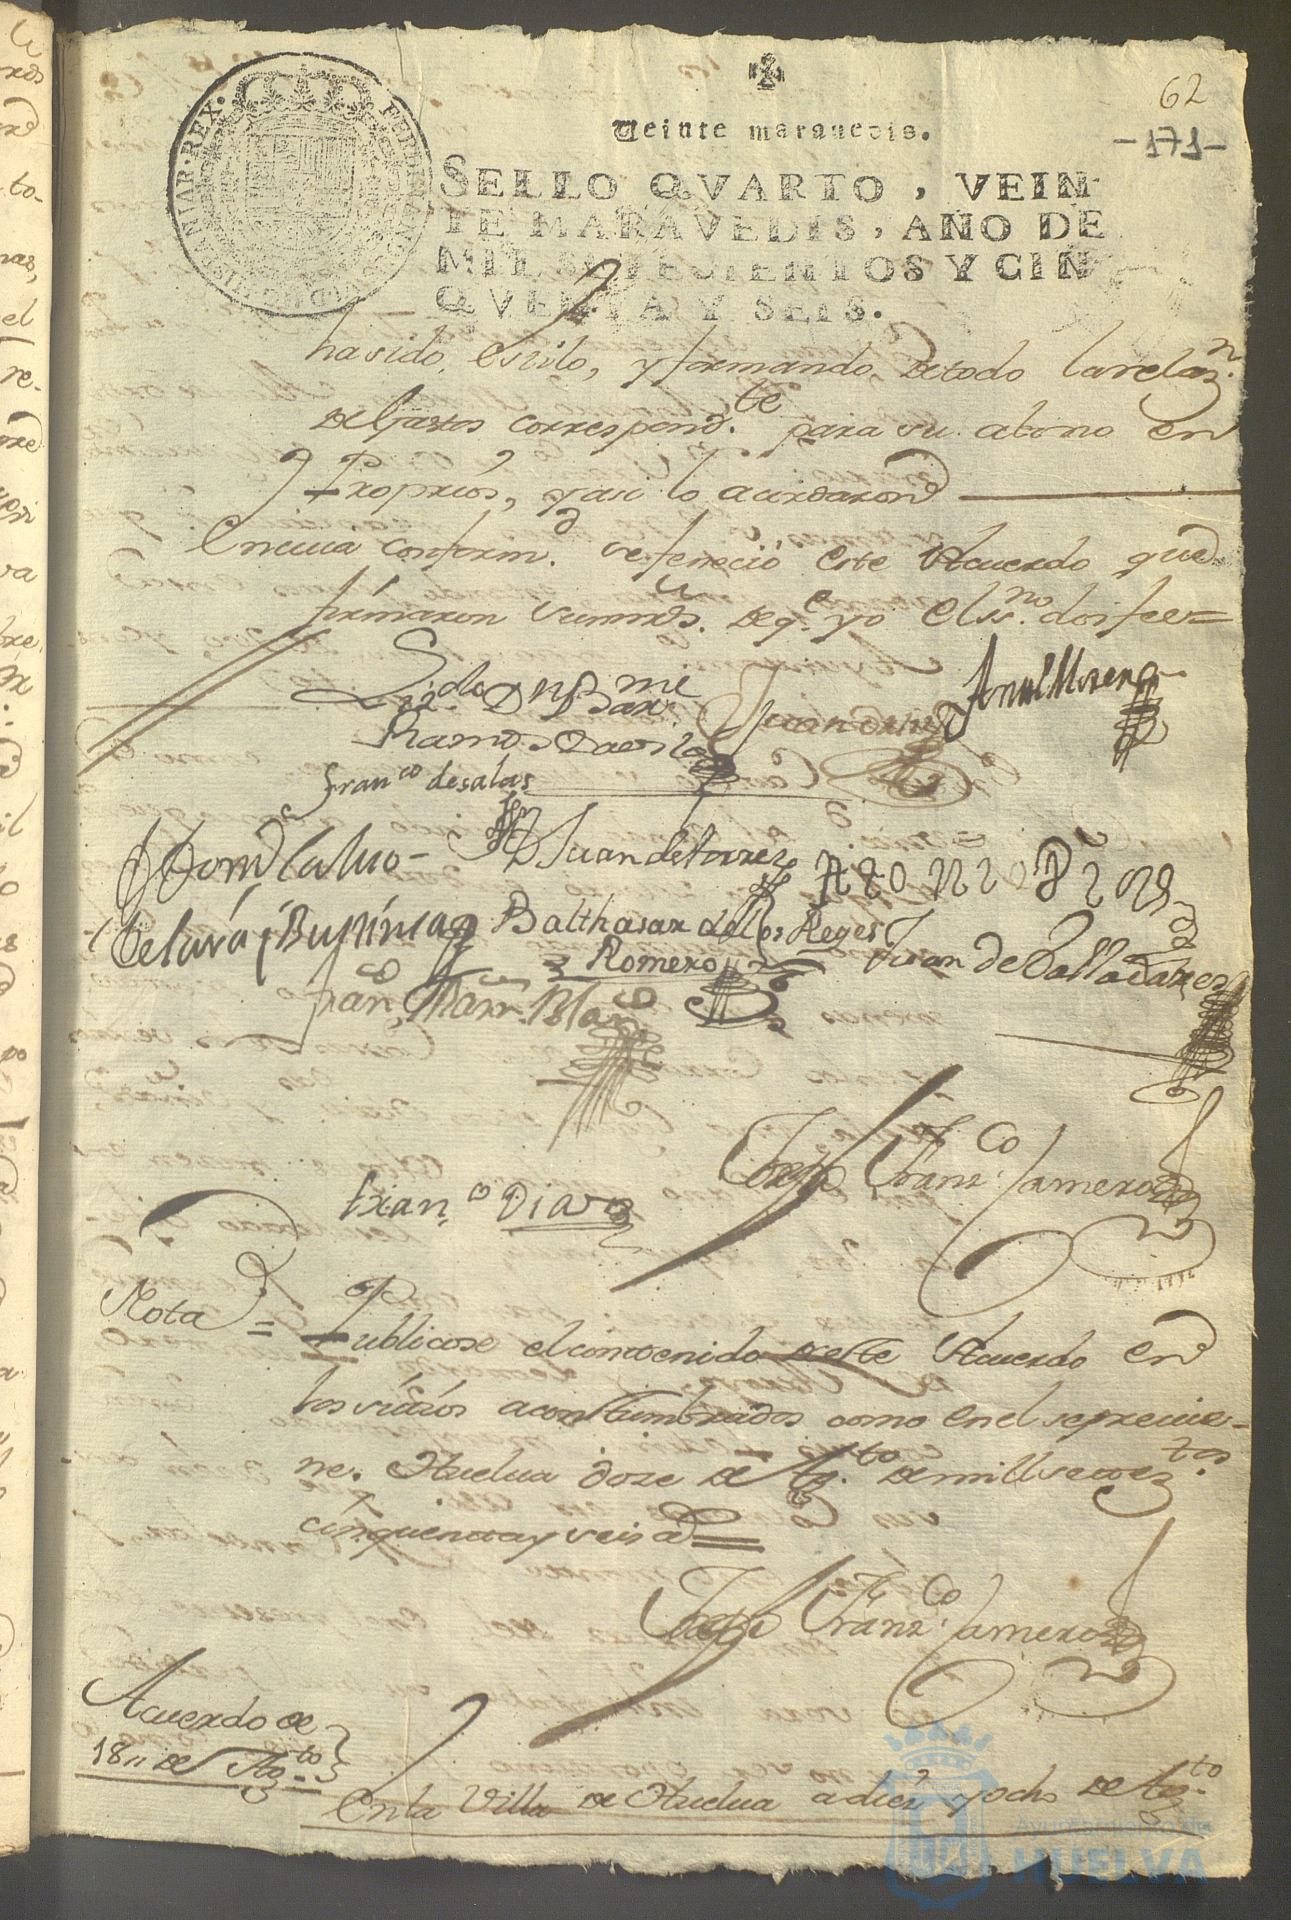 62
-171-
Veinte maravedis.
SELLO QVARTO, VEIN
TE MARAVEDIS, AÑO DE
MIL SETECIENTOS Y CIN
QVENTA Y SEIS.
ha sido, estilo, y formando, de todo la relaz.n
de Gastos correspond.te para su abono en
Proprios, y asi lo acordaron
En cuia conform.d se feneció este Acuerdo que
firmaron sus mrds. de q.e yo el ss.no doi fee=
Lizdo Dn Barme
Ramos Davila
Juan
Anttl Moreno
Franco de salas
Juan de torrez
Alonzo
Balthasar de los Reyes
Romero
Juan de Valladares
Fran.co Marn. Blanco
Franco Diaz
Joseph Franz.co Camero
Nota = Publicose el contenido de este Acuerdo en
los sitios acostumbrados como en el se previe-
ne. Huelva doze de Ag.to de mill setez.tos
cinquenta y seis a.s =
Joseph Franz.co Camero
Acuerdo de
18 de Ag.to
En la Villa de Huelva a diez y ocho de Ag.to
Ayuntamiento de
HUELVA